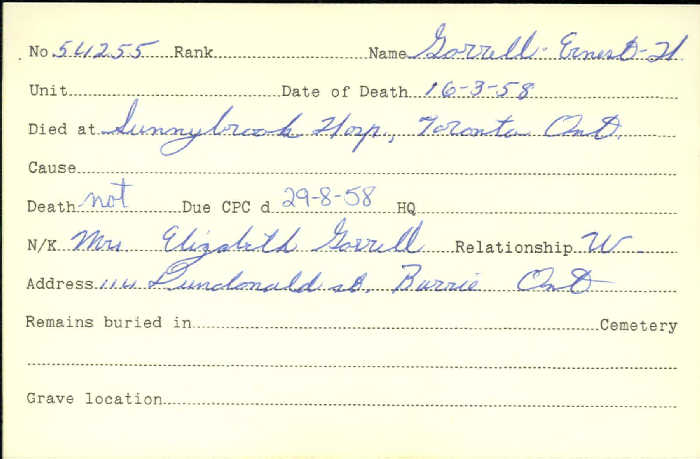 No 54255 Rank Name Gorrell - Ernest - H
Unit Date of Death 16-3-58
Died at Sunnybrook Hosp., Toronto Ont.
Cause
Death not Due CPC d 29-8-58 HQ
N/K Mrs Elizabeth Gorrell Relationship W
Address 114 Dundonald st, Barrie Ont
Remains buried in Cemetery
Grave location